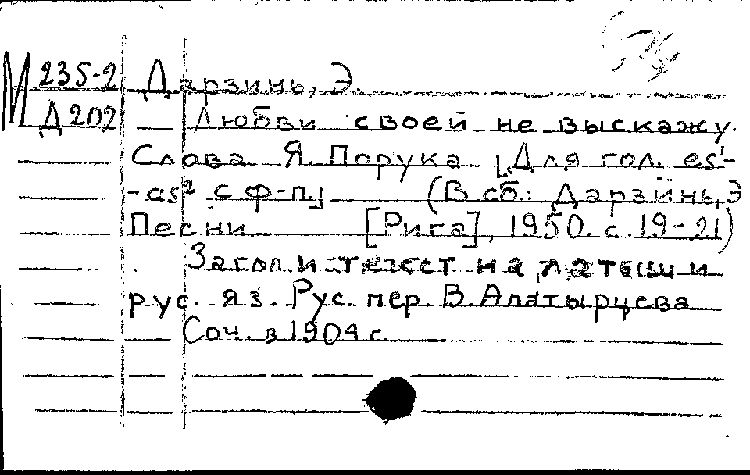 М 235-2 Дарзинь, Э.
Д 202 Любви своей не выскажу.
Слова Я. Порука [Для гол. es¹-
-as² с ф-п.] (В сб.: Дарзинь, Э
Песни [Рига], 1950. с. 19-21)
Загол. и текст на латыш. и
рус. яз. Рус. пер. В. Алатырцева
Соч. в 1904 г.